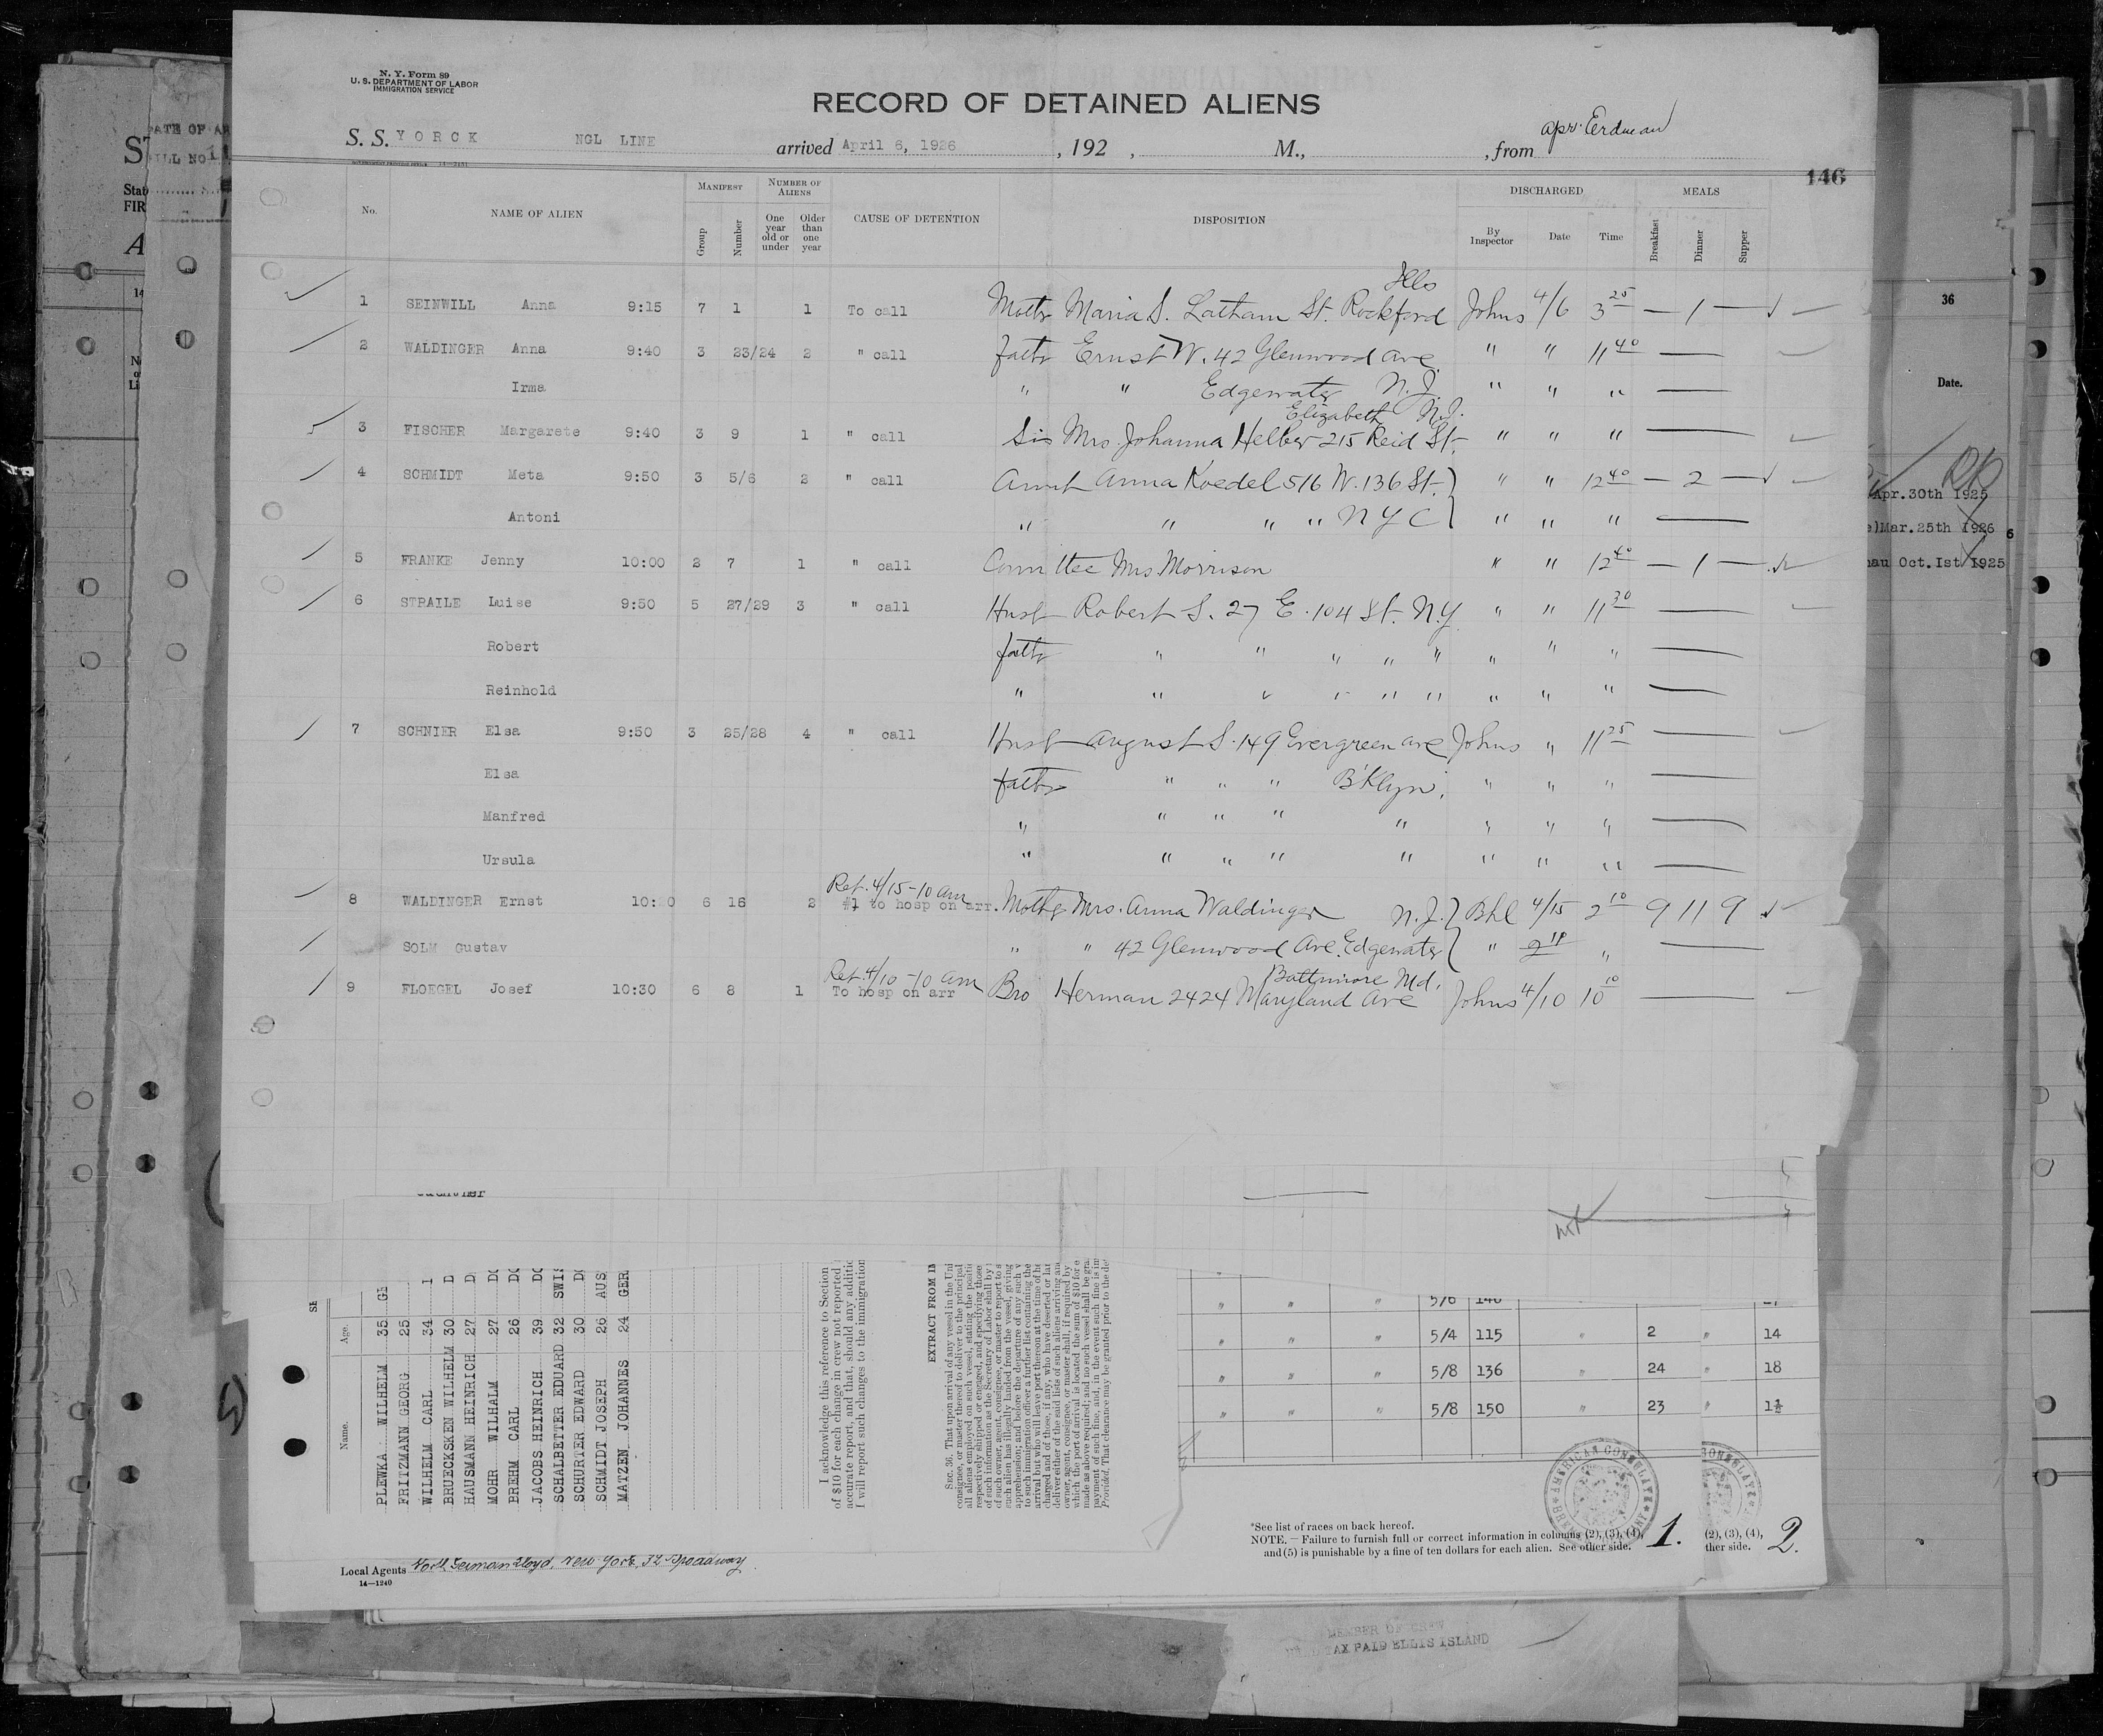 N. Y. Form 89
U. S. DEPARTMENT OF LABOR
IMMIGRATION SERVICE
RECORD OF DETAINED ALIENS
S. S. YORCK NGL LINE arrived April 6, 1926, 192 , M., , from
146
No. NAME OF ALIEN MANIFEST Group Number NUMBER OF ALIENS One year old or under Older than one year CAUSE OF DETENTION DISPOSITION DISCHARGED By Inspector Date Time MEALS Breakfast Dinner Supper
Ills
1 SEINWILL Anna 9:15 7 1 1 To call Mothr Maria S. Latham St. Rockford Johns 4/6 3 25 — 1 —
2 WALDINGER Anna 9:40 3 23/24 2 " call Fathr Ernst W. 42 Glenwood Ave. " " 11 40 —
Irma " " Edgewater N.J. " " " —
Elizabeth N.J.
3 FISCHER Margarete 9:40 3 9 1 " call Sis Mrs. Johanna Helber 215 Reid St. " " " —
4 SCHMIDT Meta 9:50 3 5/6 2 " call Aunt Anna Koedel 516 W. 136 St. } " " 12 40 — 2 —
Antoni " " " " N Y C } " " " —
5 FRANKE Jenny 10:00 2 7 1 " call Committee Mrs Morrison " " 12 40 — 1 —
6 STRAILE Luise 9:50 5 27/29 3 " call Husb Robert S. 27 E. 104 St. N.Y " " 11 30 —
Robert fathr " " " " " " " " —
Reinhold " " " " " " " " " —
7 SCHNIER Elsa 9:50 3 25/28 4 " call Husb August S. 149 Evergreen Ave Johns " 11 25 —
Elsa fathr " " " B'Klyn. " " " —
Manfred " " " " " " " " —
Ursula " " " " " " " " —
Ret. 4/15-10 am
8 WALDINGER Ernst 10: 0 6 16 2 #1 to hosp on arr. Mother Mrs. Anna Waldinger N.J. } Bhl 4/15 2 10 9 11 9
SOLM Gustav " " 42 Glenwood Ave. Edgewater } " " —
Ret. 4/10-10 am
Baltimore Md.
9 FLOEGEL Josef 10:30 6 8 1 To hosp on arr Bro Herman 2424 Maryland Ave Johns 4/10 10 10 —
36
Date.
Apr.30th 1925
Mar.25th 1926
6
Oct.1st 1925
Name. Age.
PLEWKA WILHELM 35 GE
FRITZMANN GEORG 25
WILHELM CARL 34
BRUECKSKEN WILHELM 30 D
HAUSMANN HEINRICH 27 D
MOHR WILHALM 27 DO
BREHM CARL 26 DO
JACOBS HEINRICH 39 DO
SCHALBETTER EDUARD 32 SWIS
SCHURTER EDWARD 30 DO
SCHMIDT JOSEPH 26 AUS
MATZEN JOHANNES 24 GER
I acknowledge this reference to Section
of $10 for each change in crew not reported
accurate report, and that, should any additio
I will report such changes to the immigration
EXTRACT FROM IM
SEC. 36. That upon arrival of any vessel in the Uni
consignee, or master thereof to deliver to the principal
all aliens employed on such vessel, stating the positi
respectively shipped or engaged, and specifying those
of such information as the Secretary of Labor shall by
of such owner, agent, consignee, or master to report to s
such alien has illegally landed from the vessel, giving
apprehension; and before the departure of any such v
to such immigration officer a further list containing the
arrival but who will leave port thereon at the time of h
charged and of those, if any, who have deserted or la
deliver either of the said lists of such aliens arriving an
owner, agent, consignee, or master shall, if required by
which the port of arrival is located the sum of $10 for e
made as above required; and no such vessel shall be gra
payment of such fine, and, in the event such fine is im
Provided, That clearance may be granted prior to the de
" " " 5/4 115 " 2 " 14
" " " 5/8 136 " 24 " 18
" " " 5/8 150 " 23 "
*See list of races on back hereof.
NOTE.—Failure to furnish full or correct information in columns (2), (3), (4),
and (5) is punishable by a fine of ten dollars for each alien. See other side.
1.
(2), (3), (4),
ther side.
2.
AMERICAN CONSULATE
Local Agents Nordd. German Lloyd, New York, 32 Broadway.
14—1240
MEMBER OF CREW
TAX PAID ELLIS ISLAND